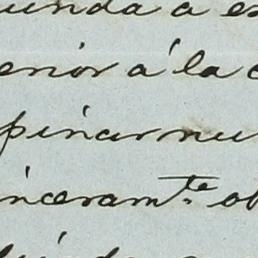 unda a es
enor á la c
pinar nu
inceramte ob